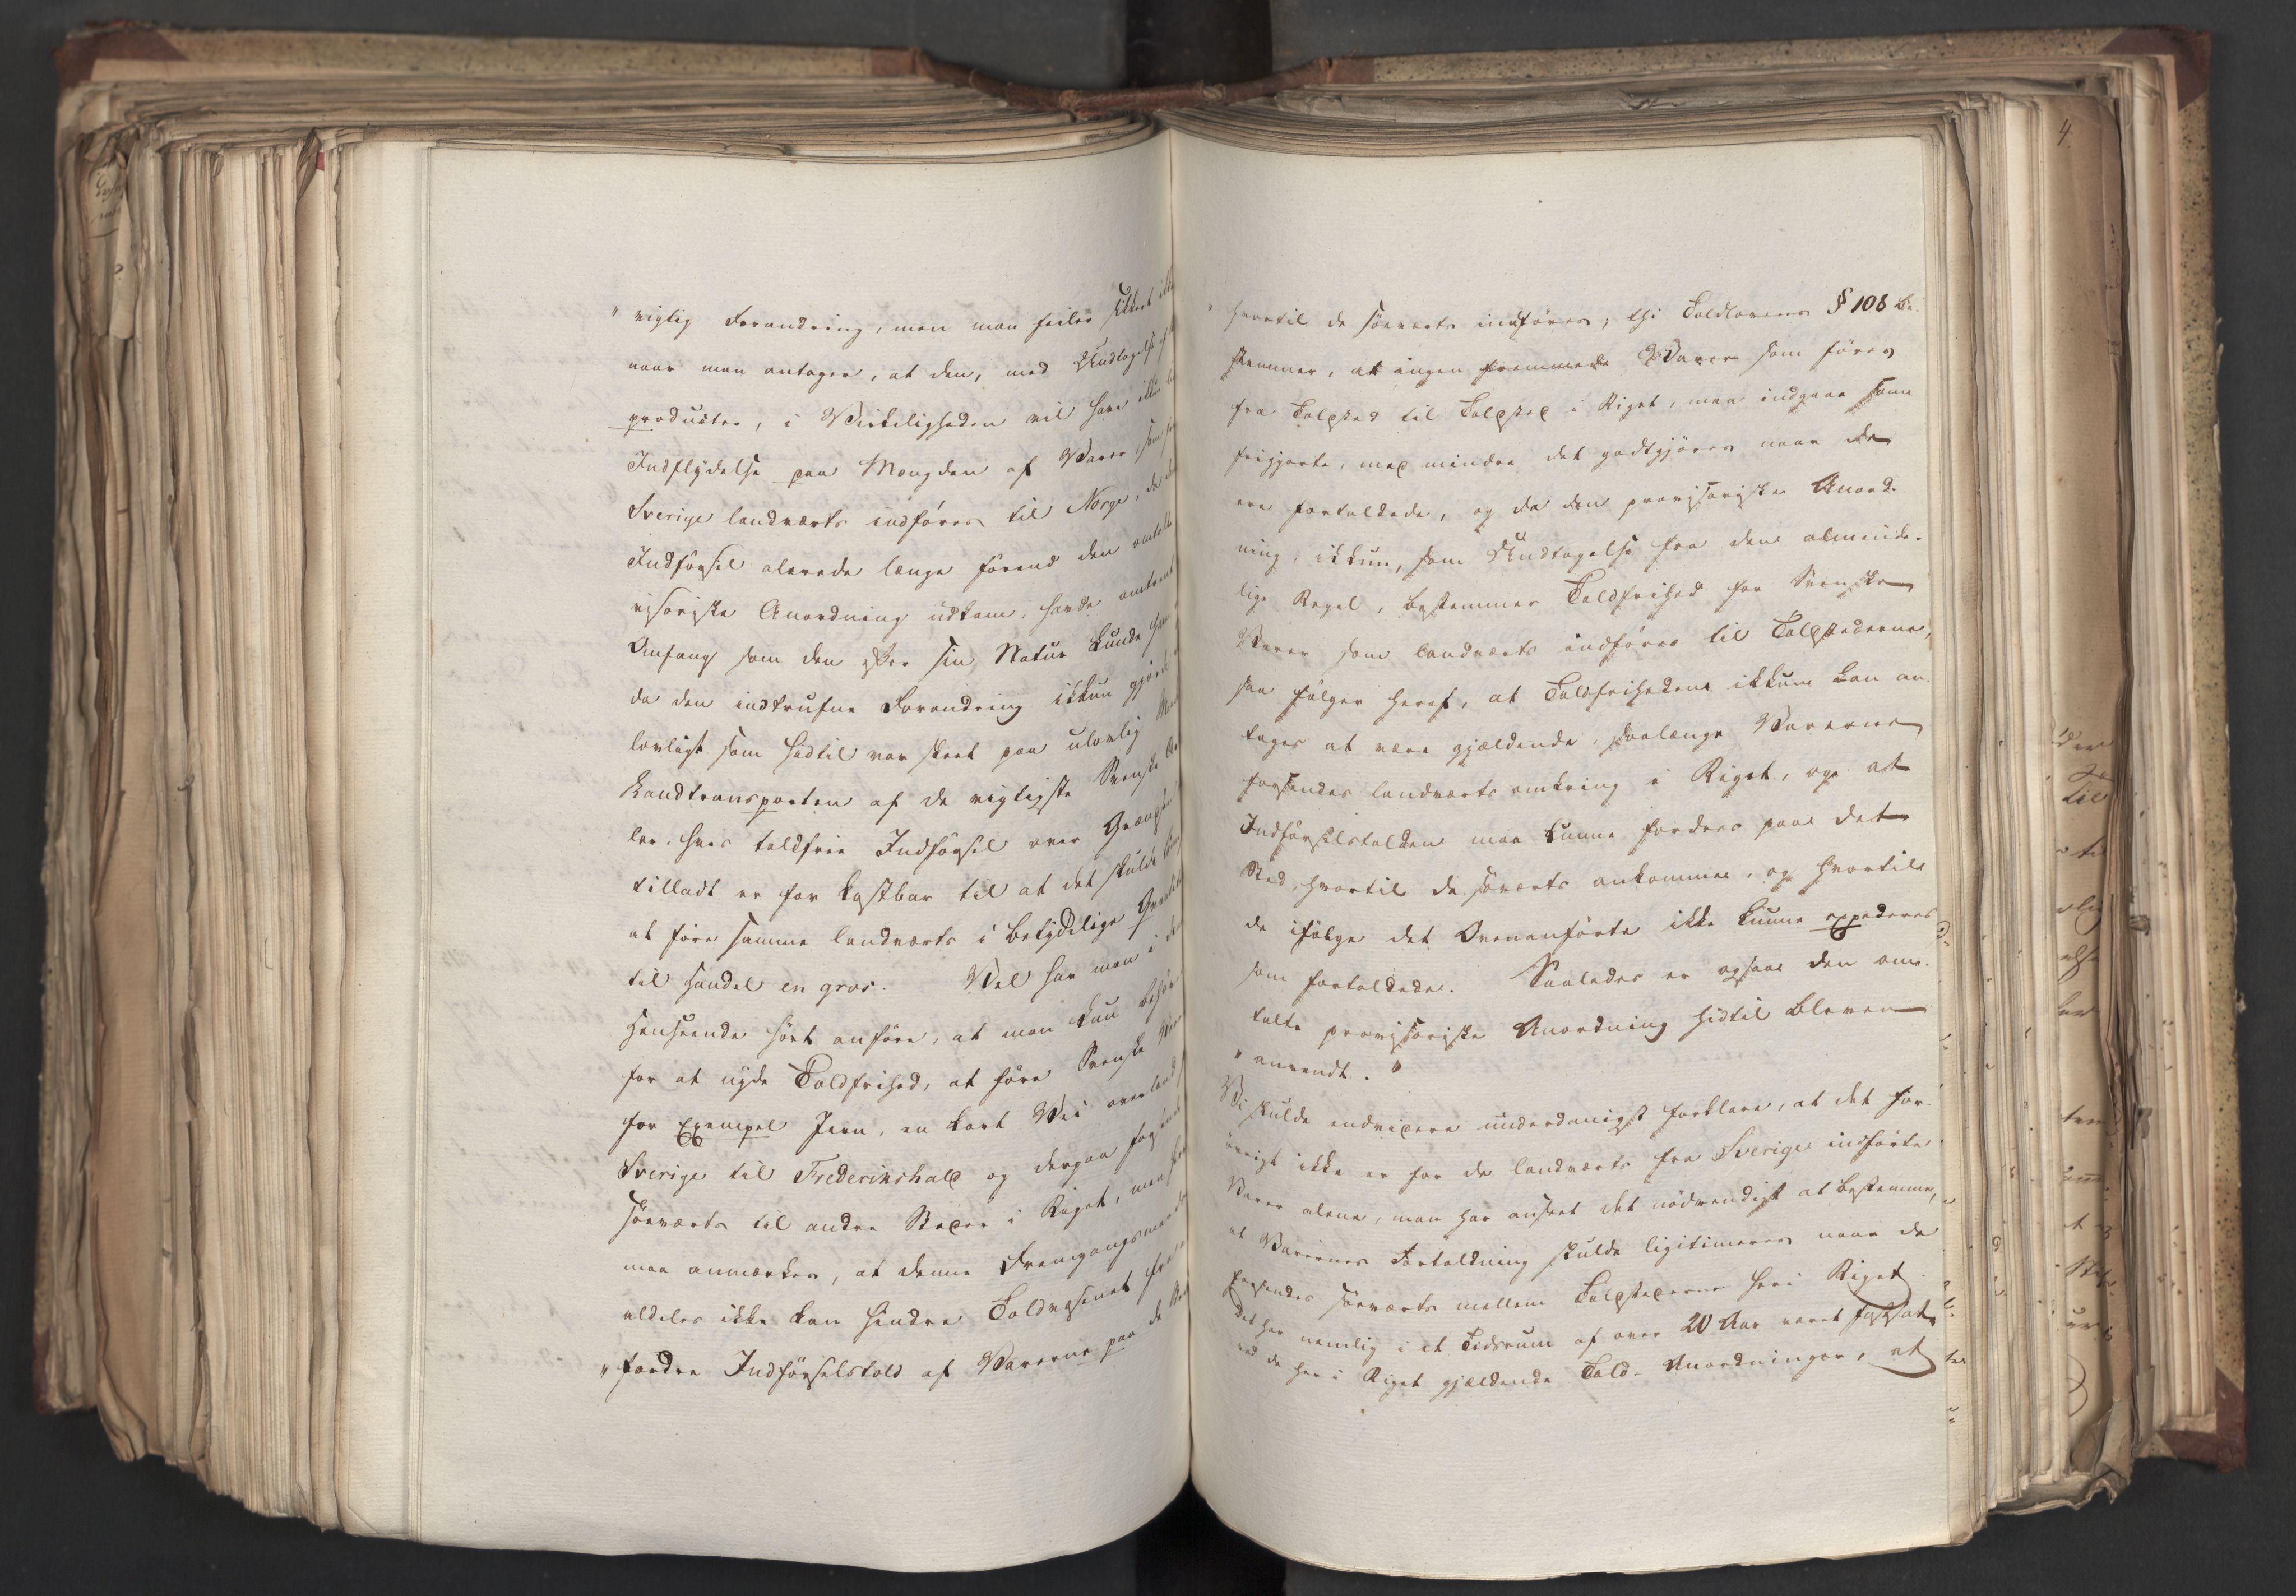 " vigtig Forandring, men man feiler sikkert
naar man antager, at den, med Undtagelse af
producter, i Virkeligheden vil have
Indflydelse paa Mængden af Varer, som
Sverige landværts indføres til Norge, da
Indførsel alerede længe førend den omtalte
visoriske Anordning udkom, havde omtrent
Omfang som den efter sin Natur kunde
da den indtrufne Forandring ikkun gjorde
lovligt som hidtil var skeet paa ulovlig
Landtransporten af de vigtigste Svenske
ler, hvis toldfrie Indførsel over Grændsen
tilladt er for kostbar til at det skulde
at føre samme landværts i betydelige
til Handel en gros. Vel har man i
Henseende hørt anføre, at man kun
for at nyde Toldfrihed, at føre Svenske
for Exempel Jern, en kort Vei overland
Sverige til Frederikshald og derpaa
søeværts til andre Steder i Riget, men
maa anmærkes, at denne Fremgangsmaade
aldeles ikke kan hindre Toldvæsenet fra
" fordre Indførselstold af Varerne paa de
" hvortil de søeværts indføres, thi Toldlovens § 108 be-
stemmer, at ingen fremmede Varer som føres
fra Toldsted til Toldsted i Riget, maa indgaae som
frigjorte, med mindre det godtgjøres naar de
ere fortoldede, og da den provisoriske Anord-
ning, ikkun, som Undtagelse fra den alminde-
lige Regel, bestemmer Toldfrihed for Svenske
Varer som landværts indføres til Toldstederne,
saa følger heraf, at Toldfriheden ikkun kan an-
tages at være gjældende, saalænge Varerne
forsendes landværts omkring i Riget, og at
Indførselstolden maa kunne fordres paa det
Sted, hvortil de søværts ankomme, og hvortil
de ifølge det Ovenanførte ikke kunne expederes
som fortoldede. Saaledes er ogsaa den om-
talte provisoriske Anordning hidtil bleven
" anvendt. "
Vi skulde endvidere underdanigst forklare, at det for-
øvrigt ikke er for de landværts fra Sverige indførte
Varer alene, man har anseet det nødvendigt at bestemme,
at Varernes Fortoldning skulde ligitimeres naar de
forsendes søeværts mellem Toldstederne her i Riget
Det har nemlig i et Tidsrum af over 20 Aar været fastsat
ved de her i Riget gjældende Told-Anordninger, at
4